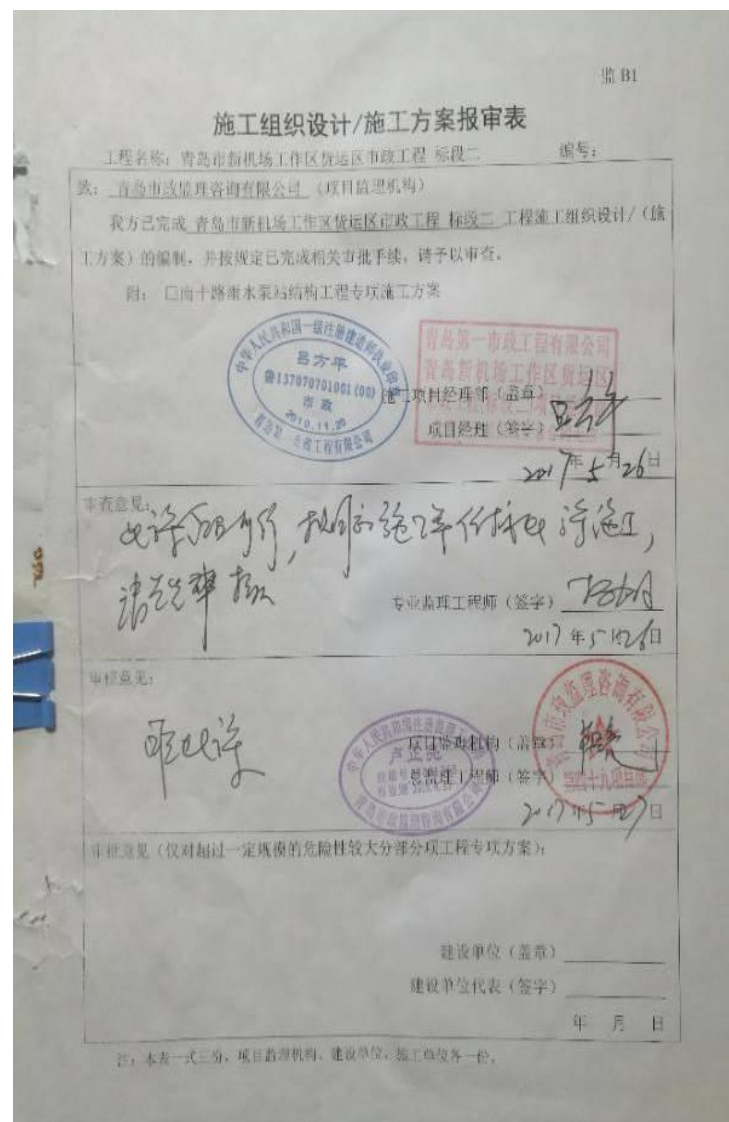 监 B1
施工组织设计/施工方案报审表
工程名称：青岛市新机场工作区货运区市政工程 标段二 编号：
致：青岛市政监理咨询有限公司（项目监理机构）
我方已完成 青岛市新机场工作区货运区市政工程 标段二 工程施工组织设计/（施
工方案）的编制，并按规定已完成相关审批手续，请予以审查。
附：口南十路雨水泵站结构工程专项施工方案
中华人民共和国一级注册建造师执业印章
吕方平
鲁137070701001(00)
市政
2019.11.20
青岛第一市政工程有限公司
青岛第一市政工程有限公司
青岛新机场工作区货运区
施工项目经理部（盖章）
项目经理（签字） 吕方平
2017年5月26日
审查意见：
专业监理工程师（签字）
2017年5月26日
审核意见：
青岛市政监理咨询有限公司
项目监理机构（盖章）
总监理工程师（签字）
2017年5月27日
审批意见（仅对超过一定规模的危险性较大分部分项工程专项方案）：
建设单位（盖章）
建设单位代表（签字）
年 月 日
注：本表一式三份，项目监理机构、建设单位、施工单位各一份。